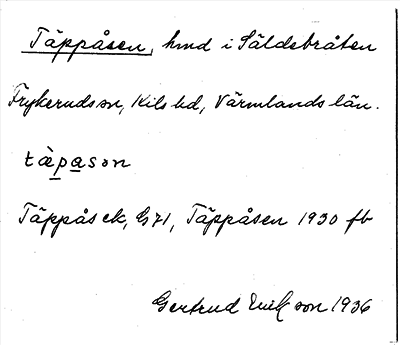 Täppåsen, hmd i Säldebråten
Frykeruds sn, Kils hd, Värmlands län.
tæ̀pasən
Täppås ek, G 71, Täppåsen 1930 fb
Gertrud Ericson 1936